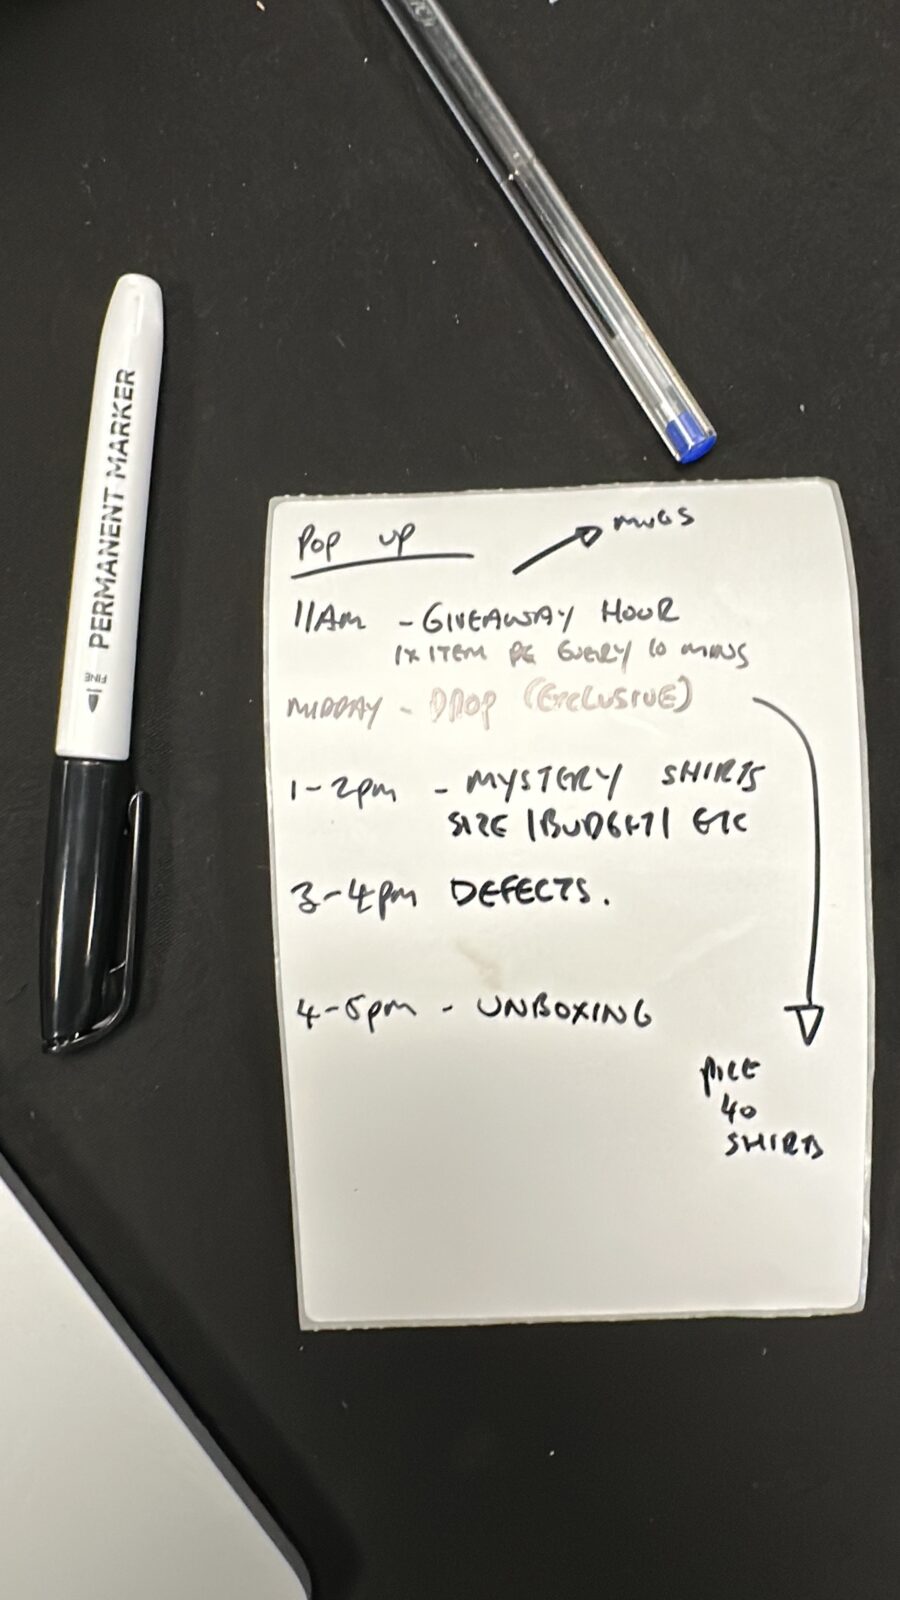 PERMANENT MARKER
FINE
POP UP
MUGS
11AM - GIVEAWAY HOUR
1X ITEM EVERY 10 MINS
MIDDAY - DROP (EXCLUSIVE)
1-2pm - MYSTERY SHIRTS
SIZE | BUDGET | ETC
3-4pm DEFECTS.
4-5pm - UNBOXING
40
SHIRTS